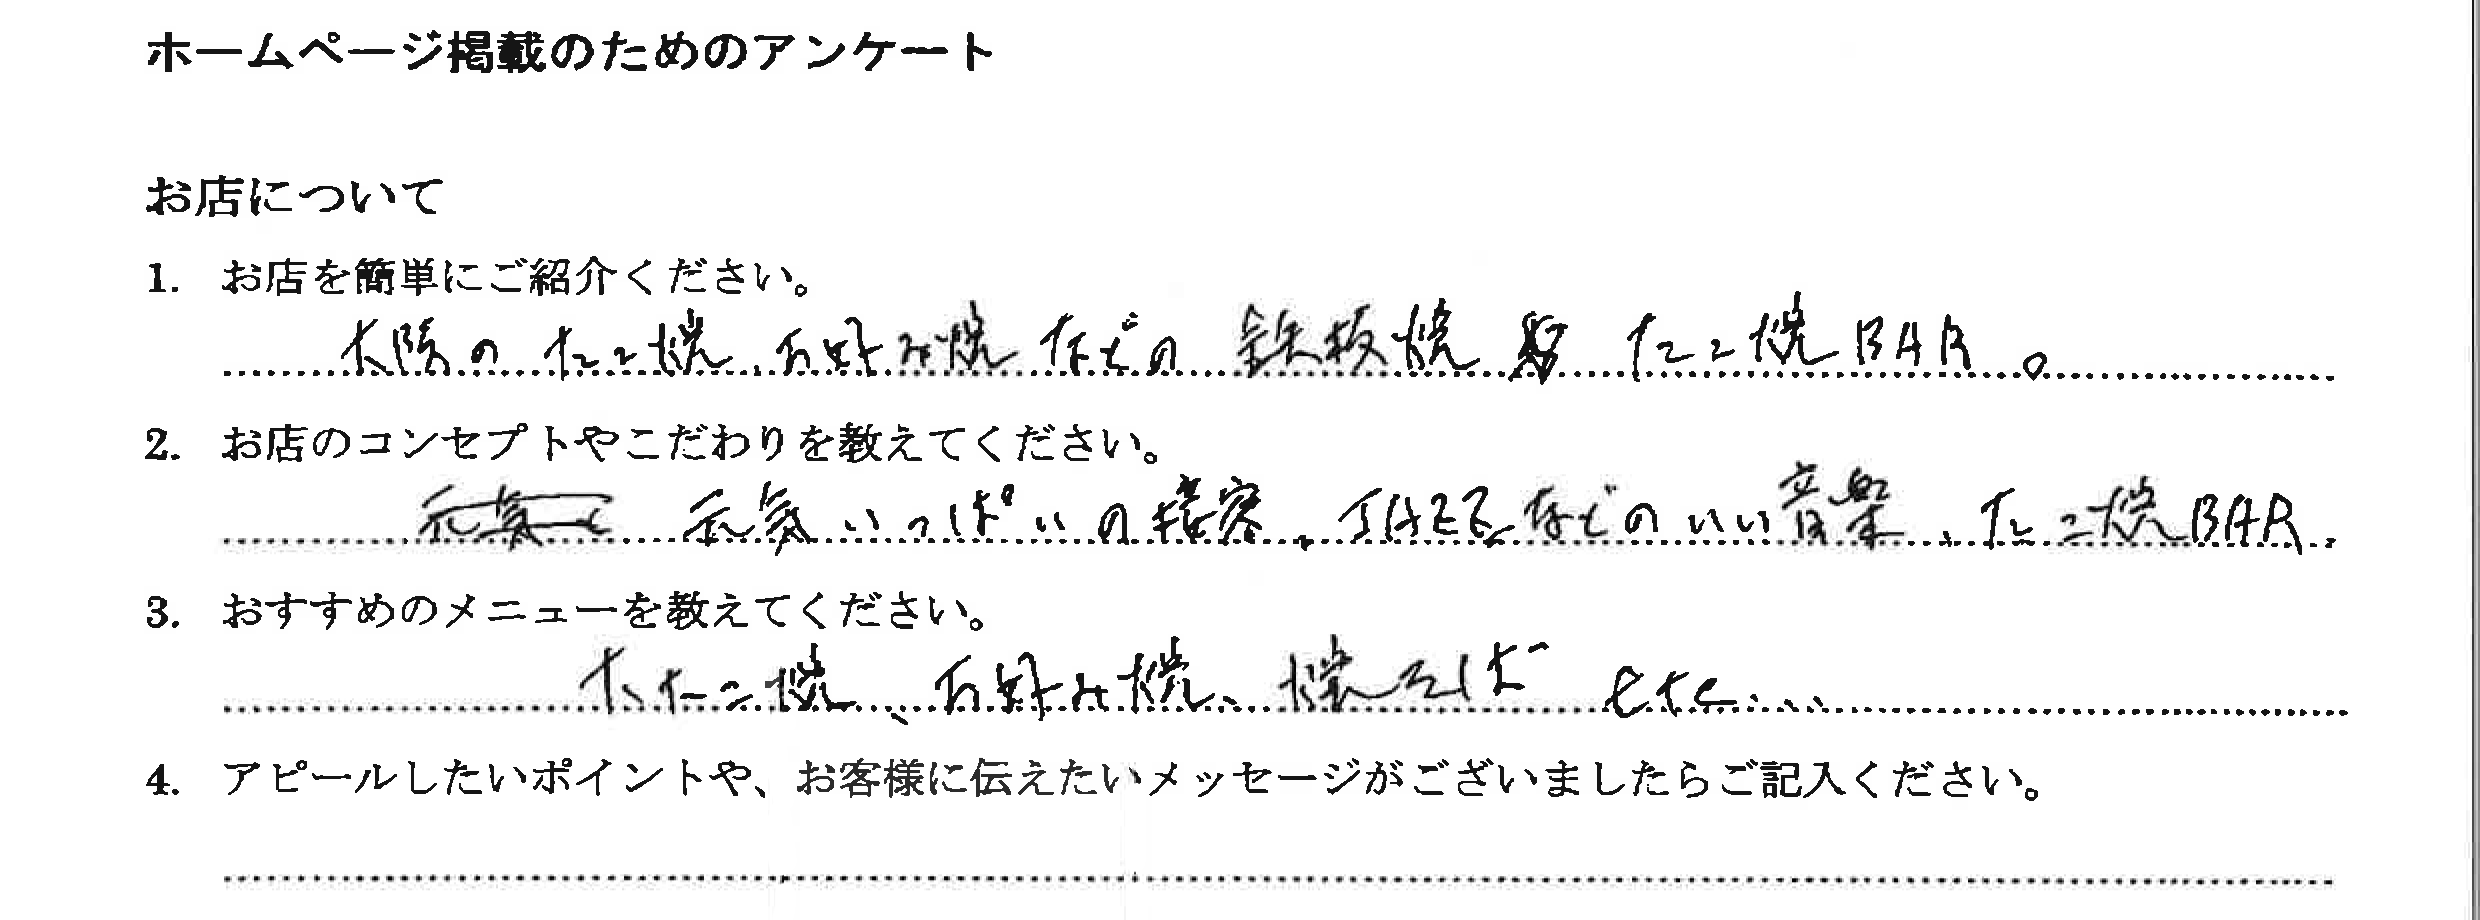 ホームページ掲載のためのアンケート
お店について
1. お店を簡単にご紹介ください。
大阪のたこ焼、お好み焼などの鉄板焼 たこ焼BAR。
2. お店のコンセプトやこだわりを教えてください。
元気いっぱいの接客、JAZZなどのいい音楽、たこ焼BAR.
3. おすすめのメニューを教えてください。
たこ焼、お好み焼、焼そば etc...
4. アピールしたいポイントや、お客様に伝えたいメッセージがございましたらご記入ください。